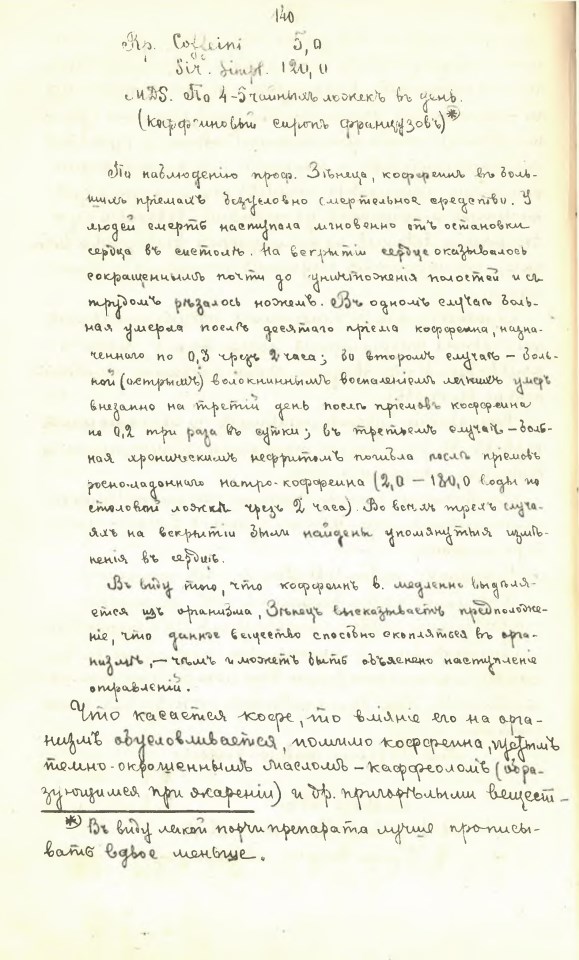 140
Rp. Coffeini 5,0
Sir. Simpl. 120,0
MDS. По 4-5 чайныхъ ложекъ въ день.
(Каффеиновый сиропъ французовъ)*
По наблюденію проф. Зѣнеца, коффеинъ въ боль-
шихъ пріемахъ безусловно смертельное средство. У
людей смерть наступала мгновенно отъ остановки
сердца въ систолѣ. На вскрытіи сердце оказывалось
сокращеннымъ почти до уничтоженія полостей и съ
трудомъ рѣзалось ножемъ. Въ одномъ случаѣ боль-
ная умерла послѣ десятаго пріема коффеина, назна-
ченнаго по 0,3 чрезъ 2 часа; во второмъ случаѣ – боль-
ной (острымъ) волокниннымъ воспаленіемъ легкихъ умеръ
внезапно на третій день послѣ пріемовъ коффеина
по 0,2 три раза въ сутки; въ третьемъ случаѣ – боль-
ная хроническимъ нефритомъ погибла послѣ пріемовъ
росноладоннаго натро-коффеина (2,0 – 180,0 воды по
столовой ложкѣ чрезъ 2 часа). Во всѣхъ трехъ случа-
яхъ на вскрытіи были найдены упомянутыя измѣ-
ненія въ сердцѣ.
Въ виду того, что коффеинъ в. медленно выдѣля-
ется изъ организма, Зѣнецъ высказываетъ предположе-
ніе, что данное вещество способно скопляться въ орга-
низмѣ, – чѣмъ и можетъ быть объяснено наступленіе
отравленій.
Что касается кофе, то вліяніе его на орга-
низмъ обусловливается, помимо коффеина,
темно-окрашеннымъ масломъ – каффеоломъ (обра-
зующимся при жареніи) и др. пригорѣлыми вещест-
*) Въ виду легкой порчи препарата лучше прописы-
вать вдвое меньше.